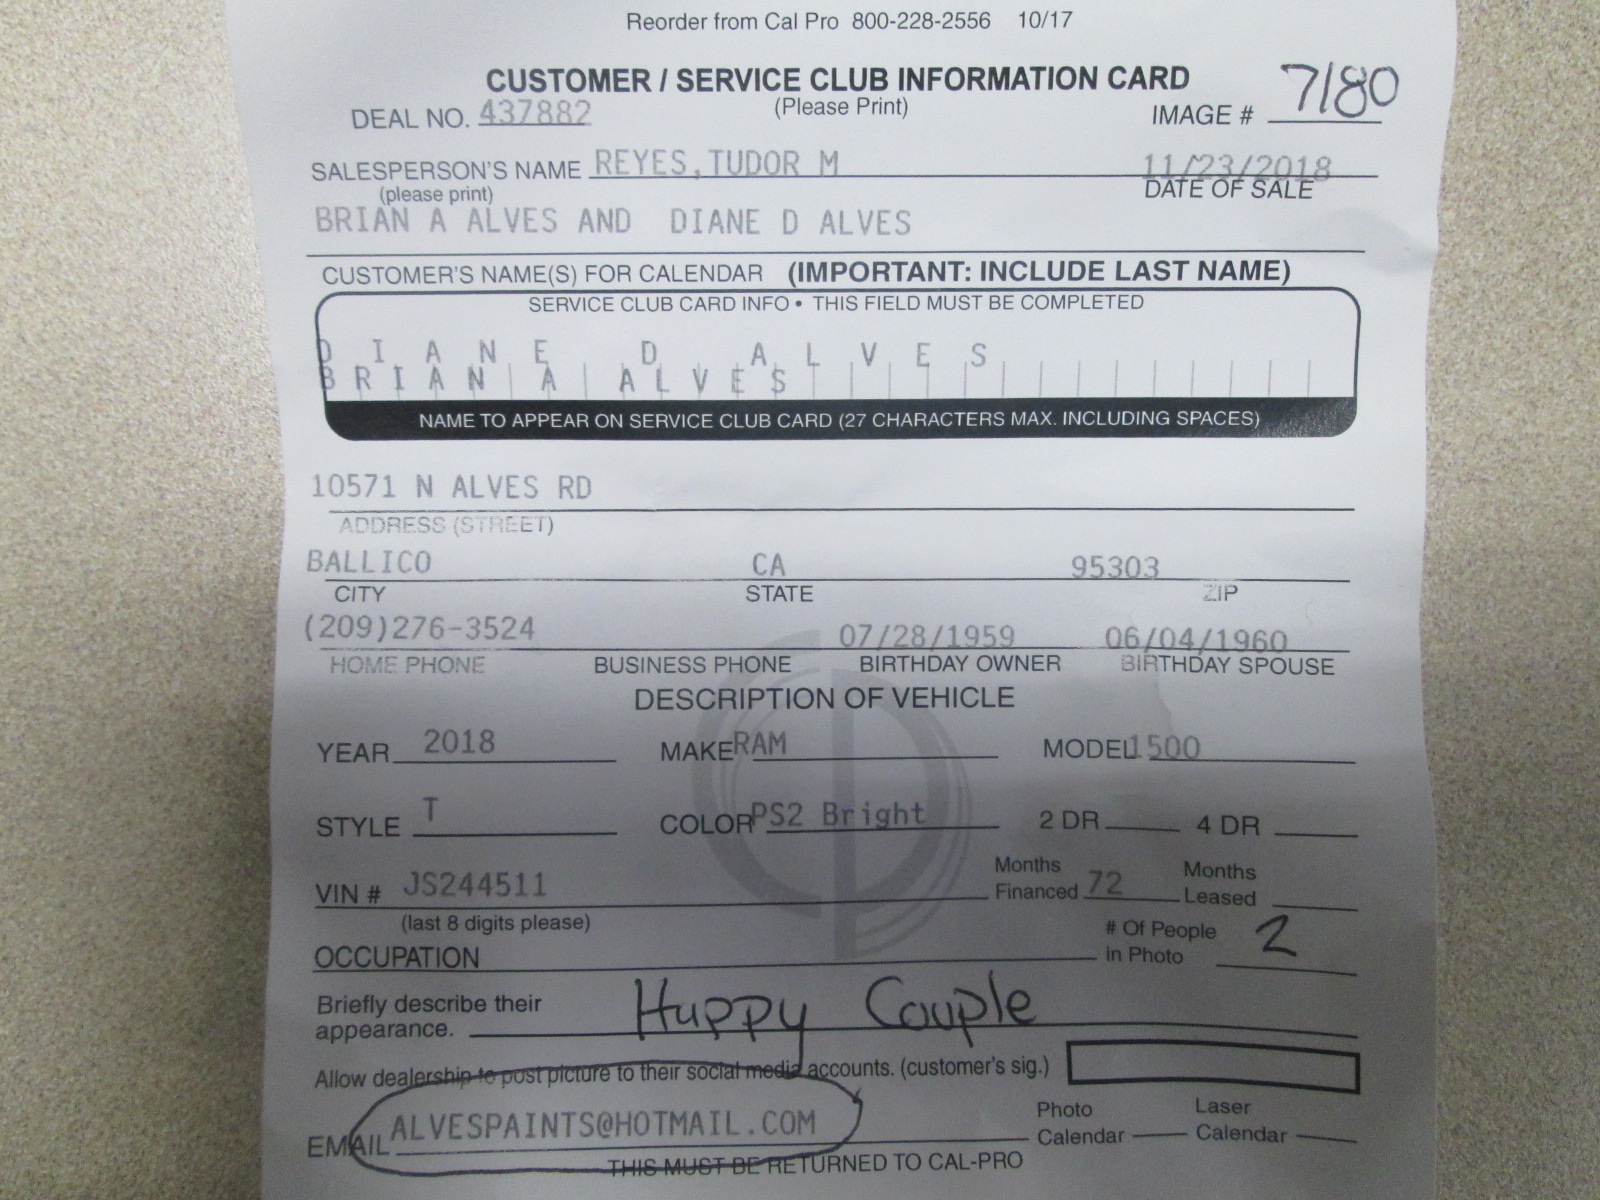 Reorder from Cal Pro 800-228-2556 10/17
CUSTOMER / SERVICE CLUB INFORMATION CARD
DEAL NO. 437882 (Please Print) IMAGE # 7180
SALESPERSON'S NAME REYES,TUDOR M 11/23/2018
(please print) DATE OF SALE
BRIAN A ALVES AND DIANE D ALVES
CUSTOMER'S NAME(S) FOR CALENDAR (IMPORTANT: INCLUDE LAST NAME)
SERVICE CLUB CARD INFO • THIS FIELD MUST BE COMPLETED
DIANE D ALVES
BRIAN A ALVES
NAME TO APPEAR ON SERVICE CLUB CARD (27 CHARACTERS MAX. INCLUDING SPACES)
10571 N ALVES RD
ADDRESS (STREET)
BALLICO CA 95303
CITY STATE ZIP
(209)276-3524 07/28/1959 06/04/1960
HOME PHONE BUSINESS PHONE BIRTHDAY OWNER BIRTHDAY SPOUSE
DESCRIPTION OF VEHICLE
YEAR 2018 MAKE RAM MODEL 1500
STYLE T COLOR PS2 Bright 2 DR 4 DR
VIN # JS244511 Months Financed 72 Months Leased
(last 8 digits please)
OCCUPATION # Of People in Photo 2
Briefly describe their
appearance. Happy Couple
Allow dealership to post picture to their social media accounts. (customer's sig.)
EMAIL ALVESPAINTS@HOTMAIL.COM Photo Calendar Laser Calendar
THIS MUST BE RETURNED TO CAL-PRO